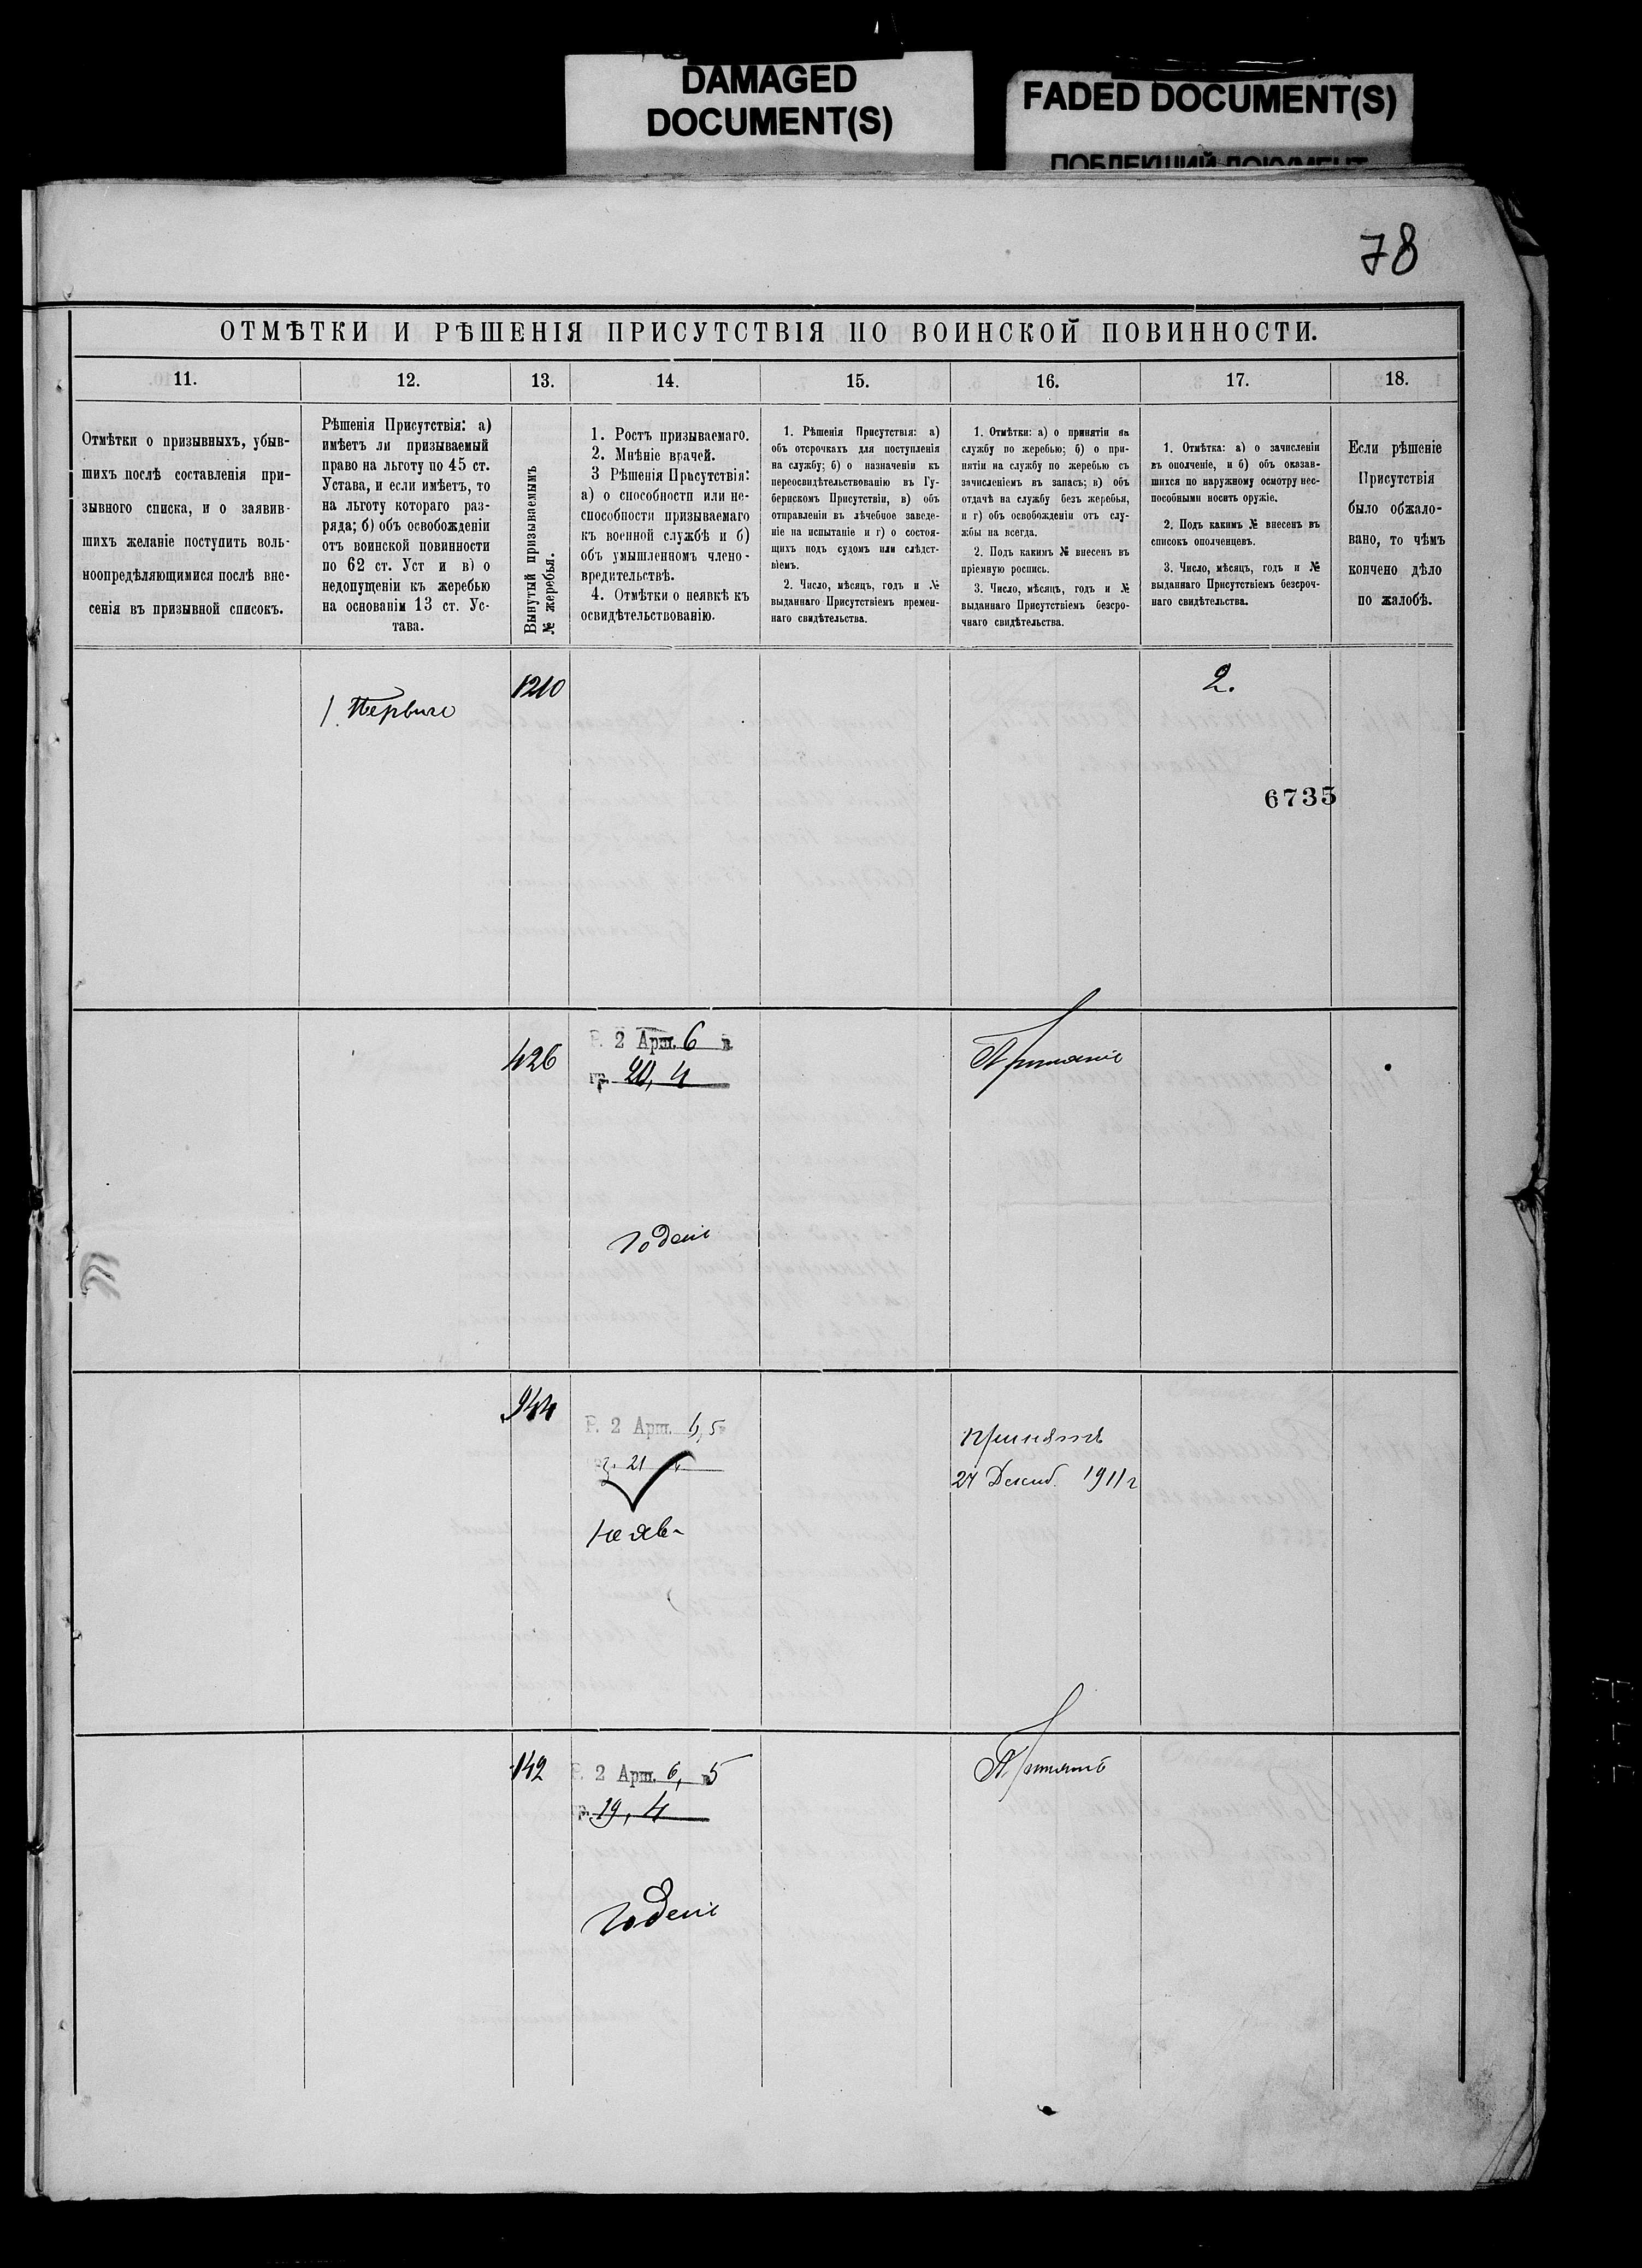 DAMAGED
DOCUMENT(S)
FADED DOCUMENT(S)
ПОБЛЕКШИЙ ДОКУМЕНТ
78
ОТМѢТКИ И РѢШЕНІЯ ПРИСУТСТВІЯ ПО ВОИНСКОЙ ПОВИННОСТИ.
11.
Отмѣтки о призывныхъ, убыв-
шихъ послѣ составленія при-
зывного списка, и о заявив-
шихъ желаніе поступить воль-
ноопредѣляющимися послѣ вне-
сенія въ призывной списокъ.
12.
Рѣшенія Присутствія: а)
имѣетъ ли призываемый
право на льготу по 45 ст.
Устава, и если имѣетъ, то
на льготу котораго раз-
ряда; б) объ освобожденіи
отъ воинской повинности
по 62 ст. Уст и в) о
недопущеніи къ жеребью
на основаніи 13 ст. Ус-
тава.
13.
Вынутый призываемымъ
№ жеребья.
14.
1. Ростъ призываемаго.
2. Мнѣніе врачей.
3 Рѣшенія Присутствія:
а) о способности или не-
способности призываемаго
къ военной службѣ и б)
объ умышленномъ члено-
вредительствѣ.
4. Отмѣтки о неявкѣ къ
освидѣтельствованію.
15.
1. Рѣшенія Присутствія: а)
объ отсрочкахъ для поступленія
на службу; б) о назначеніи къ
переосвидѣтельствованію въ Гу-
бернскомъ Присутствіи, в) объ
отправленіи въ лѣчебное заведе-
ніе на испытаніе и г) о состоя-
щихъ подъ судомъ или слѣдст-
віемъ.
2. Число, мѣсяцъ, годъ и №
выданнаго Присутствіемъ времен-
наго свидѣтельства.
16.
1. Отмѣтки: а) о принятіи на
службу по жеребью; б) о при-
нятіи на службу по жеребью съ
зачисленіемъ въ запасъ; в) объ
отдачѣ на службу безъ жеребья,
и г) объ освобожденіи отъ слу-
жбы на всегда.
2. Подъ какимъ № внесенъ въ
пріемную роспись.
3. Число, мѣсяцъ, годъ и №
выданнаго Присутствіемъ безсро-
чнаго свидѣтельства.
17.
1. Отмѣтка: а) о зачисленіи
въ ополченіе, и б) объ оказав-
шихся по наружному осмотру нес-
пособными носить оружіе.
2. Подъ какимъ № внесенъ въ
списокъ ополченцевъ.
3. Число, мѣсяцъ, годъ и №
выданнаго Присутствіемъ безсроч-
наго свидѣтельства.
18.
Если рѣшеніе
Присутствія
было обжало-
вано, то чѣмъ
кончено дѣло
по жалобѣ.
1. Перваго
1210
2.
6735
426
Р. 2 Арш. 6 в.
гр. 20, 4
Годенъ
Принятъ
944
Р. 2 Арш. 6,5
21
неяв-
принятъ
24 Декаб. 1911 г
142
Р. 2 Арш. 6, 5
гр. 19, 4
Годенъ
Принятъ